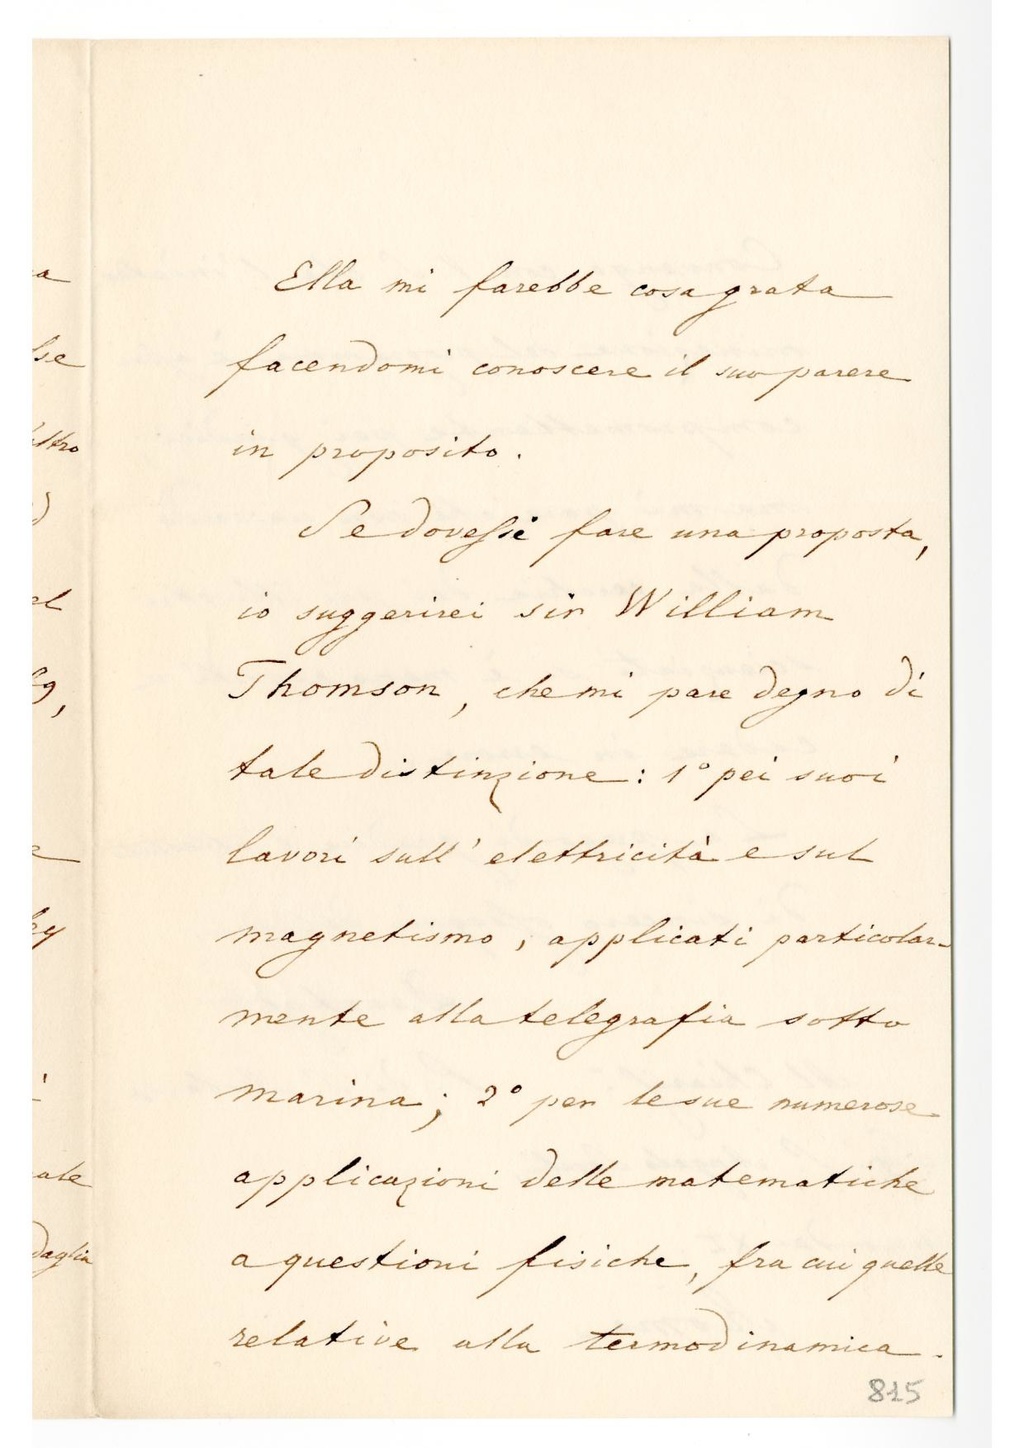 Ella mi farebbe cosa grata
facendomi conoscere il suo parere
in proposito.
Se dovessi fare una proposta,
io suggerirei sir William
Thomson, che mi pare degno di
tale distinzione: 1° pei suoi
lavori sull'elettricità e sul
magnetismo, applicati particolar-
mente alla telegrafia sotto
marina; 2° per le sue numerose
applicazioni delle matematiche
a questioni fisiche, fra cui quelle
relative alla termodinamica.
815